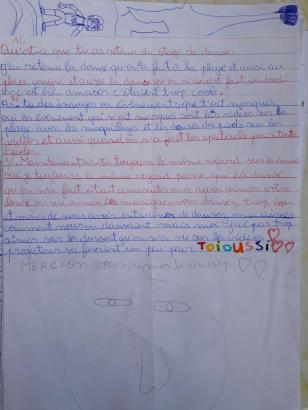 1).
Qu'est-ce que tu as retenu du stage de danse.
j'ai retenu la danse qu'on a fait à la plage et aussi au
et aussi la danse qu'on avait fait vendredi
on s'est bien amuser c'étaient trop cool.
2) as tu des images ou évènements qui t'ont marqués,
oui les évènement qui m'ont marqués sont les vidéos sur la
plage avec les maquillages et les les pieds sur les
vidéos et aussi quand on a fait les spectacle
3) Maintenant as-tu toujours le même regard sur la danse
oui j'ai toujours le même regard parce que la danse
qu'on a fait était amusante on a aussi aimés votre
danse on a aimés les musiques vous dansez trop bien
et merci de nous avoir de danser, on a aimés
comment nous on dansaient mais moi j'ai pas trop
aimer sur les danses qu'on a vu sur les vidéos
projecteur sa faisaient un peu peur TOIOUSSI
MERCI ON VOUS aimes beaucoup